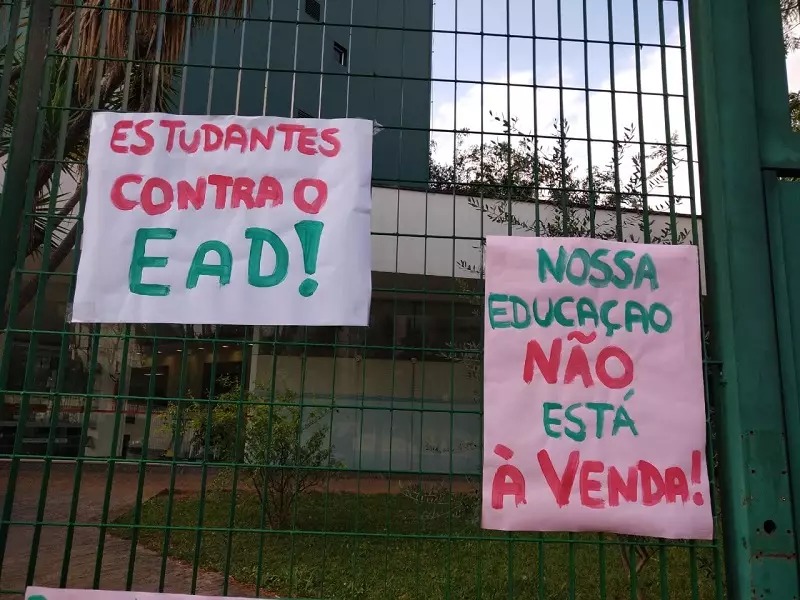 ESTUDANTES
CONTRA O
EAD!
NOSSA
EDUCAÇAO
NÃO
ESTÁ
À VENDA!